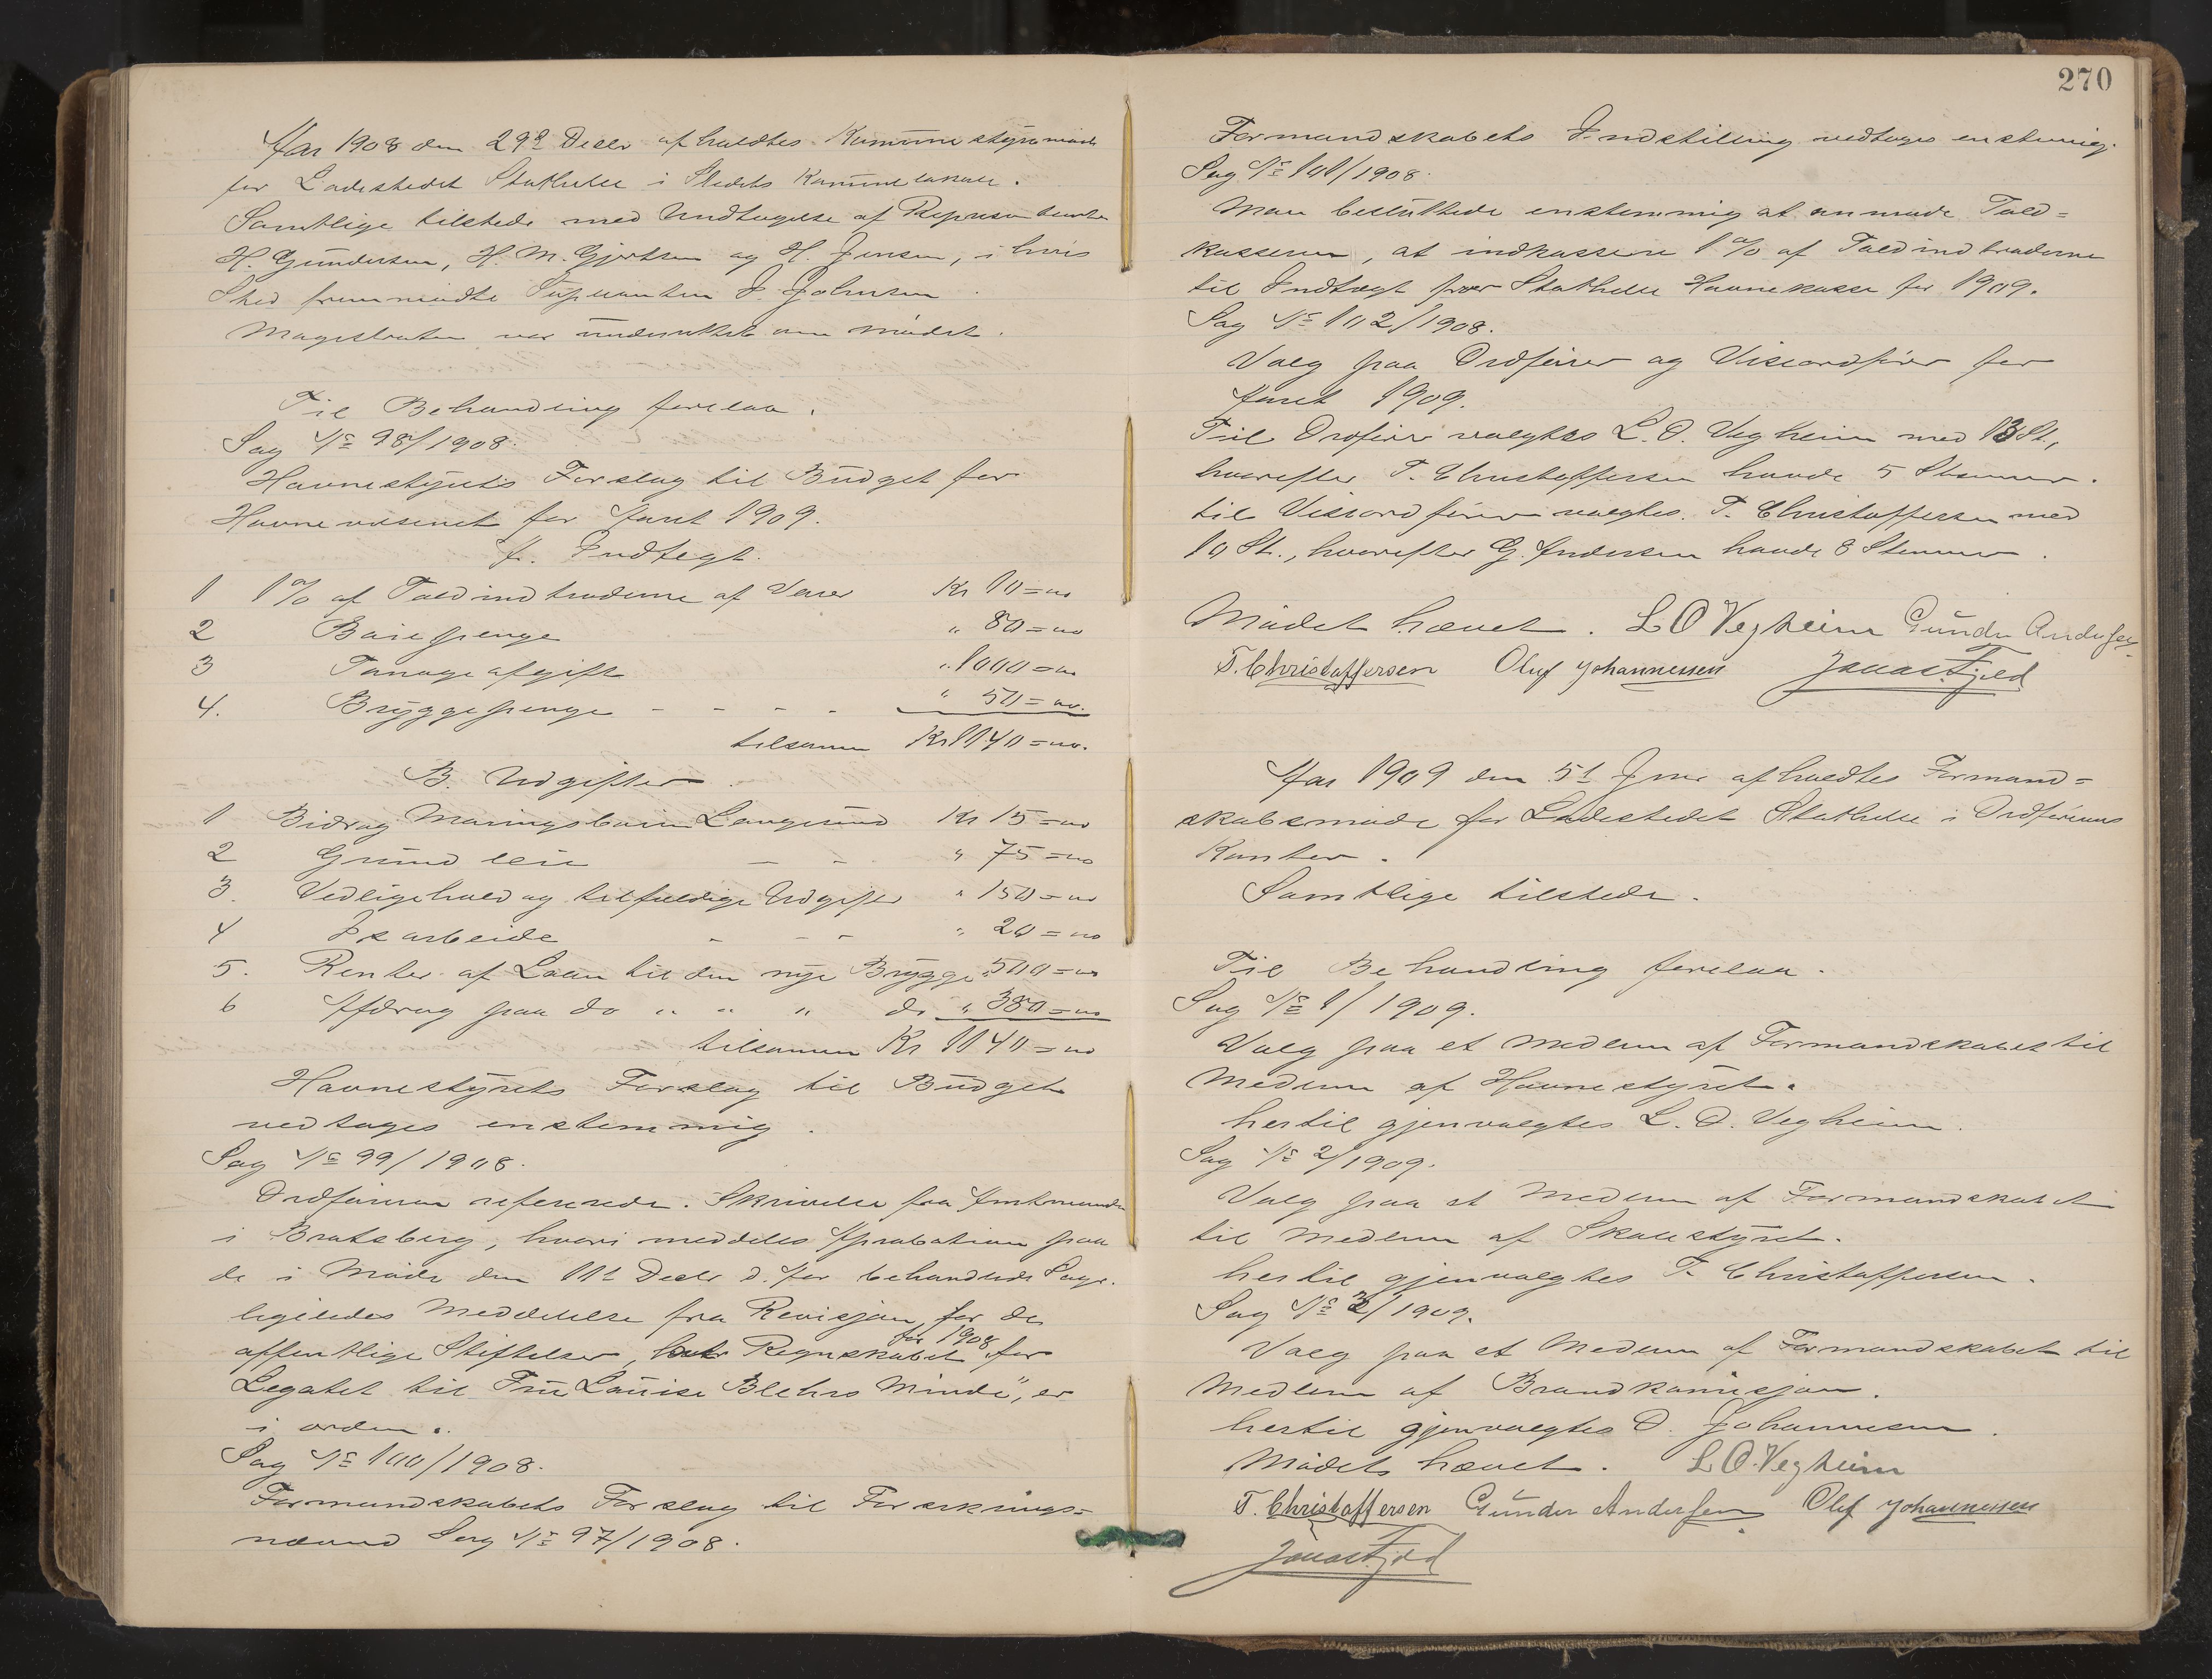 Aar 1908 den 29de Decbr afholdtes Kommunestyremøde
for Ladestedet Stathelle i Stedets Kommunelokale.
Samtlige tilstede med Undtagelse af Repræsentanterne
H. Gundersen, H. M. Gjertsen og H. Jensen, i hvis
Sted fremmødte Supleanten J. Johnsen
Magistraten var underrettet om mødet.
Til Behandling forelaa.
Sag No 98/1908.
Havnestyrets Forslag til Budget for
Havnevæsenet for Aaret 1909.
A. Indtegt.
1 1% af Toldindtraderne af Varer Kr 10=00
2 Bøiepenge " 80=00
3 Tonageafgift " 1000=00
4. Bryggepenge - - - - " 50=00.
tilsamm Kr 1140=00.
B. Udgifter
1 Bidrag Maringsbøien Langesund Kr 15=00
2 Grund leie - - " 75=00
3. Vedligehold og tilfældige Udgifter " 150=00
4 Isarbeide - - - " 20=00
5. Renter af Laan til den nye Brygge " 500=00
6 Afdrag paa do " " " do " 380=00
tilsamm Kr 1140=00
Havnestyrets Forslag til Budget
vedtoges enstemmig.
Sag No 99/1908.
Ordføreren refererede. Skrivelse fra Amtmanden
i Bratsberg, hvori meddeles Aprobation paa
de i Møde den 11t Decbr d. Aar behandlede Sager.
ligeledes Meddelelse fra Revisjon for de
offentlige Stiftelser, Regnskabet for 1908 for
Legatet til Fru Louise Blehrs Minde", er
i orden.
Sag No 100/1908.
Formandskabets Forslag til Forsiknings=
nævnd Sag No 97/1908.
270
Formandskabets Indstilling vedtoges enstemig.
Sag No 101/1908.
Man besluttede enstemmig at anmode Told=
kassereren, at indkassere 1% af Toldindtraderne
til Indtægt for Stathelle Havnekasse for 1909.
Sag No 102/1908.
Valg paa Ordfører og Viseordfører for
Aaret 1909.
Til Ordfører valgtes L. O. Vegheim med 13 St.,
hvorefter T. Christoffersen havde 5 Stemmer.
til Viseordfører valgtes. T. Christoffersen med
10 St., hvorefter G. Andersen havde 8 Stemmer.
Mødet hævet. L O Vegheim Gunder Andersen
T. Christoffersen Oluf Johannessen Jonas Fjeld
Aar 1909 den 5t Janr afholdtes Formand=
skabsmøde for Ladestedet Stathelle i Ordførerens
Kontor.
Samtlige tilstede.
Til Behandling forelaa.
Sag No 1/1909.
Valg paa et Medlem af Formandskabet til
Medlem af Havnestyret.
hertil gjenvalgtes L. O. Vegheim.
Sag No 2/1909.
Valg paa et Medlem af Formandskabet
til Medlem af Skolestyret.
hertil gjenvalgtes T. Christoffersen.
Sag No 3/1909.
Valg paa et Medlem af Formandskabet til
Medlem af Brandkomisjon.
hertil gjenvalgtes O. Johannesen.
Mødets hævet. L O. Vegheim
T. Christoffersen Gunder Andersen Oluf Johannessen
Jonas Fjeld